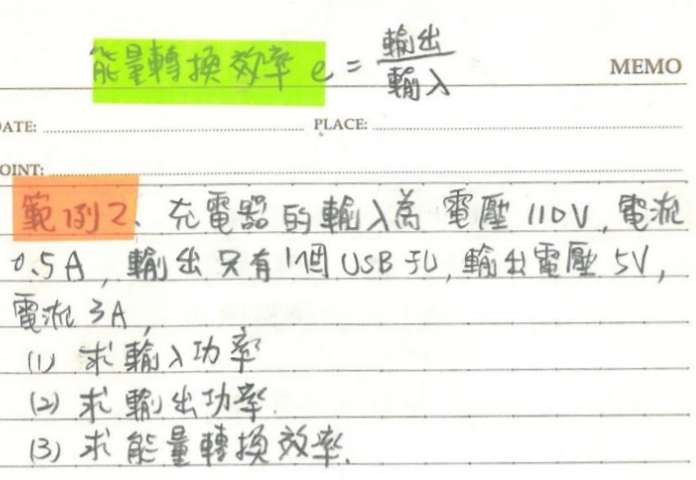 能量轉換效率 e = 輸出/輸入
MEMO
DATE:
PLACE:
OINT:
範例2、充電器的輸入為 電壓 110V, 電流
0.5A, 輸出只有1個USB孔, 輸出電壓 5V,
電流 3A,
(1) 求輸入功率
(2) 求輸出功率.
(3) 求能量轉換效率.